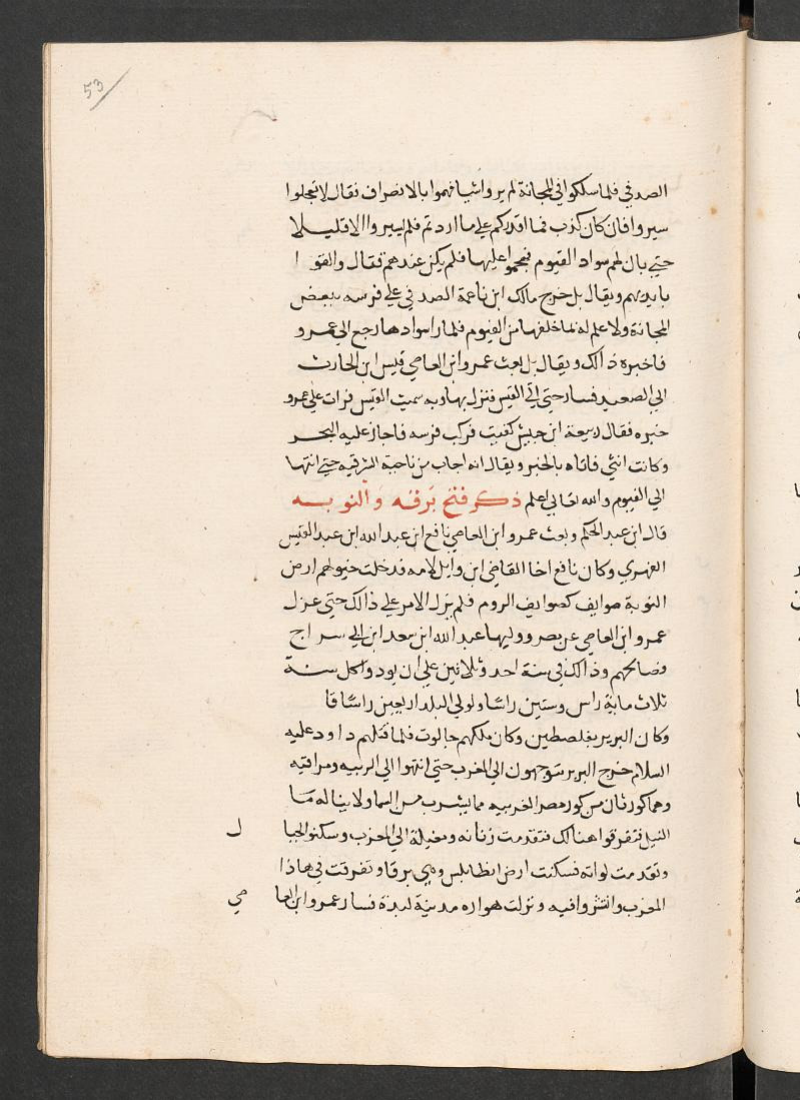 53
الصدفي فلما سلكوا في المجانة لم يروا شيا فهموا بالانصراف فقال لا تعجلوا
سيروا فان كان كذب فما اقدركم علي ما اردتم فلم يسيروا الا قليلا
حتي بان لهم سواد الفيوم فهجموا عليها فلم يكن عندهم قتال والقوا
بايديهم ويقال بل خرج مالك ابن ناعمة الصدفي علي فرسه ببعض
المجانة ولا علم له بما خلفها من الفيوم فلما راسوادها رجع الي عمرو
فاخبره ذالك ويقال بل بعث عمرو ابن العاصي قيس ابن الحارث
الي الصعيد فسار حتي اتي القيس فنزل بها وبه سميت القيس فرات علي عمرو
خبره فقال ربيعة ابن حبيش كفيت فركب فرسه فاجاز عليه البحر
وكانت انثي فاتاه بالخبر ويقال انه اجاب من ناحية الشرقيه حتي انتها
الي الفيوم والله تعالي اعلم ذكر فتح برقه والنوبه
قال ابن عبد الحكم وبعث عمرو ابن العاصي نافع ابن عبد الله ابن عبد القيس
الفهري وكان نافع اخا القاضي ابن وايل لامه فدخلت خيولهم ارض
النوبة صوايف كصوايف الروم فلم يزل الامر علي ذالك حتي عزل
عمرو ابن العاصي عن مصر ووليها عبد الله ابن سعد ابن ابي سراج
فصالحهم وذالك في سنة احد وثلاثين علي ان يودوا كل سنة
ثلاث ماية راس وستين راسا ولوالي البلد اربعين راسا قا
وكان البربر بفلصطين وكان ملكهم جالوت فلما قتلهم داود عليه
السلام خرج البربر متوجهون الي المغرب حتي انتهوا الي الربيه ومراقيه
وهما كورتان من كور مصر الغربيه مما يشرب من السما ولا يناله ما
النيل فتفرقوا هنالك فتقدمت زناته ومغيلة الي المغرب وسكنوا الجبا ل
وتقدمت لواته فسكنت ارض انطابلس وهي برقا وتفرقت في هاذا
المغرب وانتشروا فيه ونزلت هواره مدينة لبدة فسار عمرو ابن العا صي